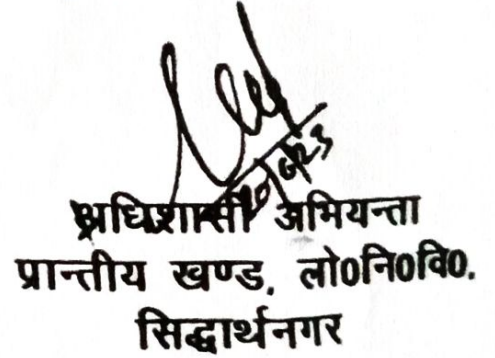 अधिशासी अभियन्ता
प्रान्तीय खण्ड, लो0नि0वि0.
सिद्धार्थनगर